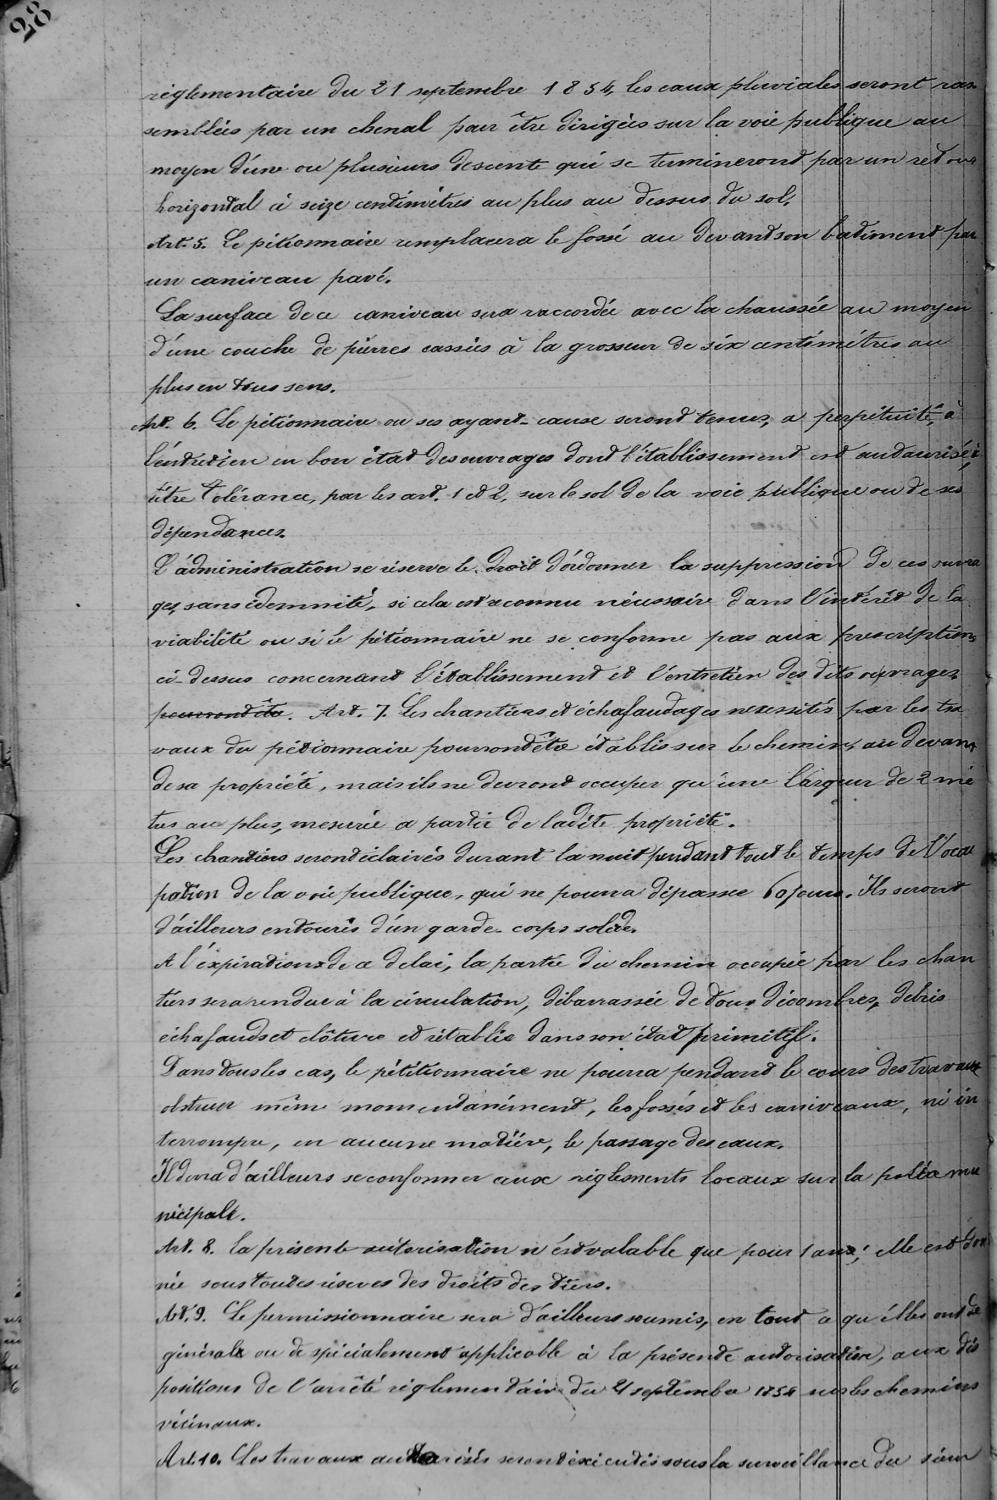 28
réglementaire du 21 septembre 1854, les eaux pluviales seront ras
semblées par un chenal pour être dirigées sur la voie publique au
moyen d'une ou plusieurs descente qui se termineront par un retour
horizontal à seize centimètres au plus au dessus du sol.
Art. 5. Le pétionnaire remplacera le fossé au devant son batiment par
un caniveau pavé.
La surface de ce caniveau sera raccordée avec la chaussée au moyen
d'une couche de pierres cassées à la grosseur de six centimètres au
plus en tous sens.
Art. 6. Le pétionnaire ou ses ayant-cause seront tenus, a perpétuité, à
l'entretien en bon état des ouvrages dont l'établissement est autaurisé, à
titre tolérance, par les art. 1 et 2, sur le sol de la voie publique ou de ses
dépendances.
L'administration se réserve le droit d'ordonner la suppression de ces ouvra
ges, sans idemnité, si cela est reconnu nécessaire dans l'intérêt de la
viabilité ou si le pétionnaire ne se conforme pas aux prescriptions
ci-dessus concernant l'établissement et l'entretien des dits ouvrages
pourront être. Art. 7. Les chantiers et échafaudages nécessités par les tra
vaux du pétionnaire pourront être établis sur le chemin, au devant
de sa propriété, mais ils ne devront occuper qu'une largeur de 2 mè
tres au plus, mesurée a partir de ladite propriété.
Les chantiers seront éclairés durant la nuit pendant tout le temps de l'occu
pation de la voie publique, qui ne pourra dépasser 60 jours. Ils seront
d'ailleurs entourés d'un garde-corps solide.
A l'expiration de ce delai, la partie du chemin occupée par les chan
tiers sera rendue à la circulation, débarrassée de tous décombres, debris
échafauds et clôture et rétablie dans son état primitif.
Dans tous les cas, le pétitionnaire ne pourra pendant le cours des travaux
obstruer même momentanément, les fossés et les caniveaux, ni in
terrompre, en aucune matière, le passage des eaux.
Il devra d'ailleurs se conformer aux règlements locaux sur la police mu
nicipale.
Art. 8. la présente autorisation n'est valable que pour 1 ans; elle est don
née sous toutes réserves des droits des tiers.
Art. 9. Le permissionnaire sera d'ailleurs soumis, en tout ce qu'elles ont de
générale ou de spécialement applicable à la présente autorisation, aux dis
positions de l'arrêté réglementaire du 21 septembre 1854 sur les chemins
vicinaux.
Art. 10. Les travaux autorisés seront exécutés sous la surveillance du sieur